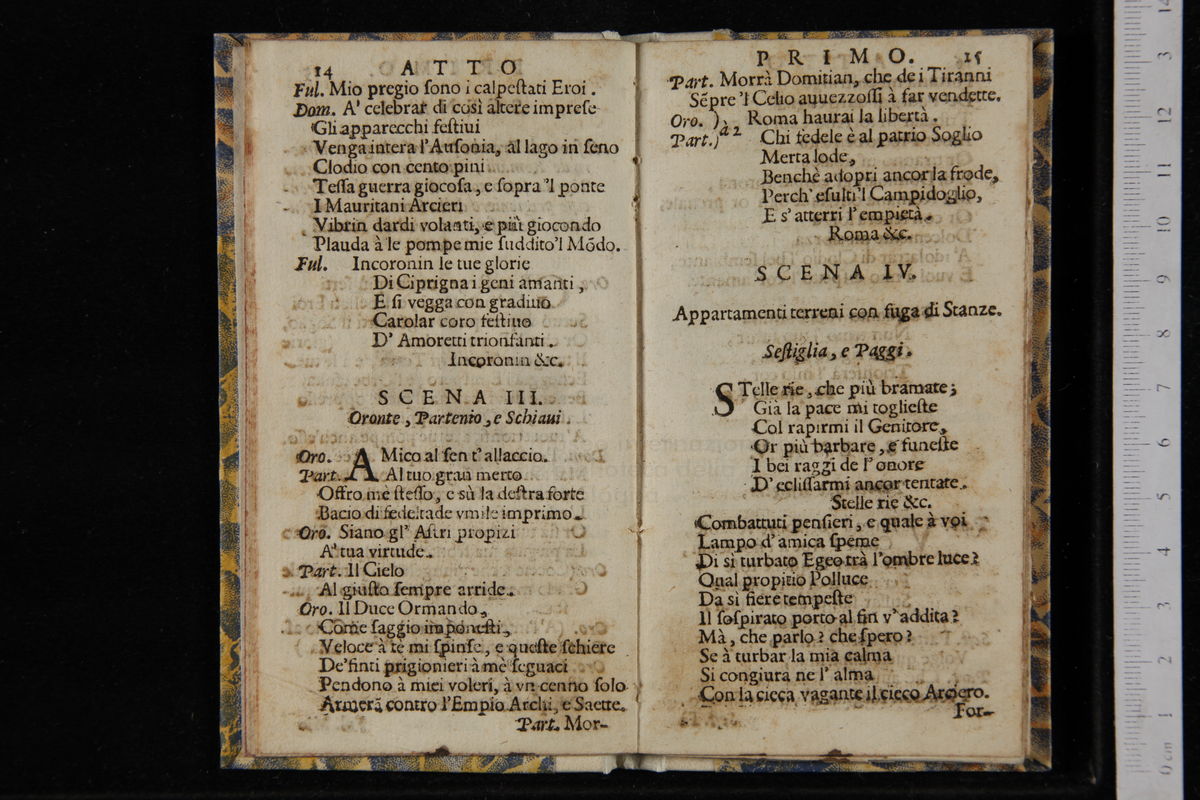 14 ATTO
Ful. Mio pregio sono i calpeſtati Eroi.
Dom. A' celebrar di così altere impreſe
Gli apparecchi feſtiui
Venga intera l'Auſonia, al lago in ſeno
Clodio con cento pini
Teſſa guerra giocoſa, e ſopra 'l ponte
I Mauritani Arcieri
Vibrin dardi volanti, e più giocondo
Plauda à le pompe mie ſuddito 'l Mõdo.
Ful. Incoronin le tue glorie
Di Ciprigna i geni amanti,
E ſi vegga con gradiuo
Carolar coro feſtiuo
D' Amoretti trionfanti.
Incoronin &c.
SCENA III.
Oronte, Partenio, e Schiaui.
Oro. AMico al ſen t' allaccio.
Part. Al tuo gran merto
Offro mè ſteſſo, e sù la deſtra forte
Bacio di fedeltade vmile imprimo.
Oro. Siano gl' Aſtri propizi
A' tua virtude.
Part. Il Cielo
Al giuſto ſempre arride.
Oro. Il Duce Ormando,
Come ſaggio imponeſti,
Veloce à te mi ſpinſe, e queſte ſchiere
De' finti prigionieri à me ſeguaci
Pendono à miei voleri, à vn cenno ſolo
Armerã contro l'Empio Archi, e Saette.
Part. Mor-
PRIMO. 15
Part. Morrà Domitian, che de i Tiranni
Sẽpre 'l Celio auuezzoſſi à far vendette.
Oro. ) Roma haurai la libertà.
Part.) à 2 Chi fedele è al patrio Soglio
Merta lode,
Benchè adopri ancor la frode,
Perch' eſulti 'l Campidoglio,
E s' atterri l' empietà.
Roma &c.
SCENA IV.
Appartamenti terreni con fuga di Stanze.
Seſtiglia, e Paggi.
STelle rie, che più bramate;
Già la pace mi toglieſte
Col rapirmi il Genitore,
Or più barbare, e funeſte
I bei raggi de l' onore
D' ecliſſarmi ancor tentate.
Stelle rie &c.
Combattuti penſieri, e quale à voi
Lampo d' amica ſpeme
Di sì turbato Egeo trà l'ombre luce?
Qual propitio Polluce
Da sì fiere tempeſte
Il ſoſpirato porto al fin v' addita?
Mà, che parlo? che ſpero?
Se à turbar la mia calma
Si congiura ne l' alma
Con la cieca vagante il cieco Arciero.
For-